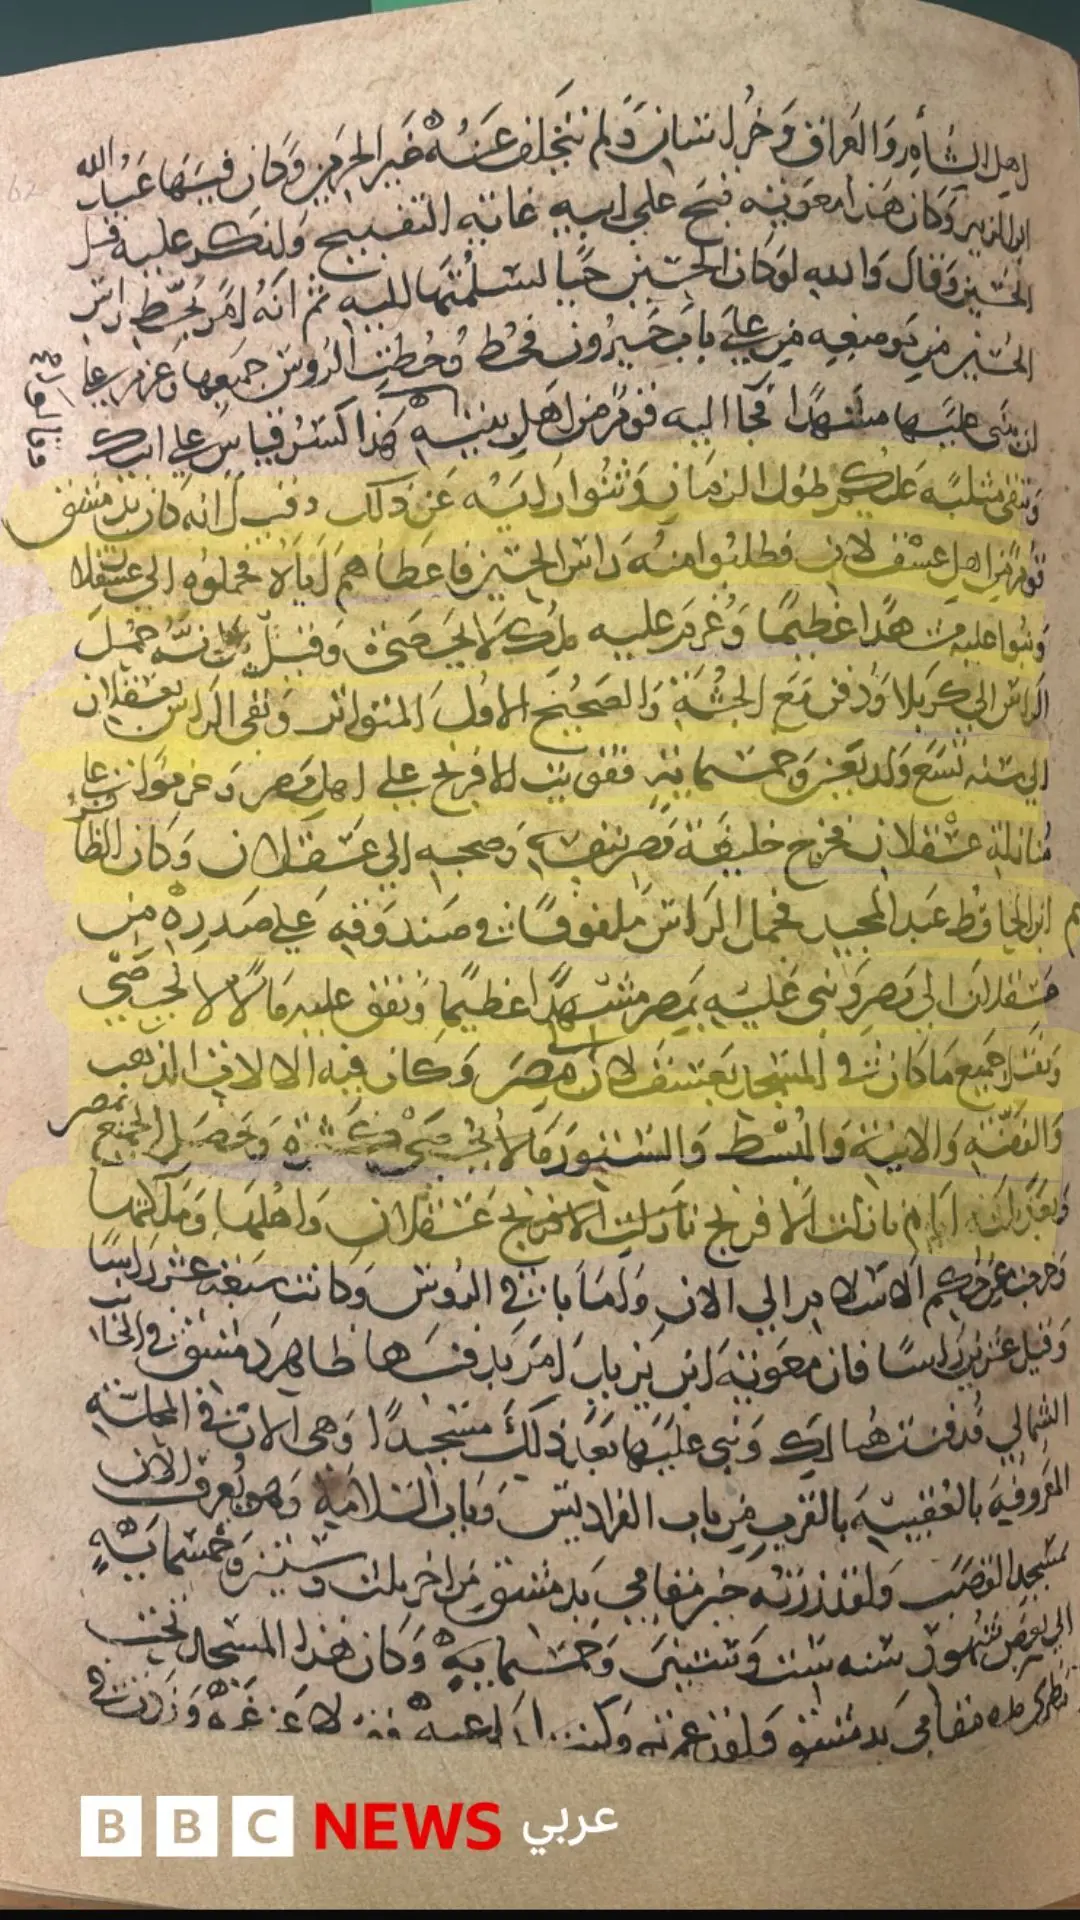 اهل الشام والعراق وخراسان ولم يتخلف عنه غير الحرمين وكان فيها عبد الله
ابن الزبير وكان هذا معوية قبح على ابيه غاية التقبيح وانكر عليه قتل
الحسين وقال والله لو كان الحسين حيا لسلمتها اليه ثم انه امر بحط راس
الحسين من موضعه من على باب جيرون فحط وحطت الروس جميعها وعزم على
ان يبنى عليها مشهدا فجا اليه قوم من اهل بيته هذا على ابيك
وتبقى مثلبة عليكم طول الزمان وثنوا رايه عن ذلك وقيل انه كان بدمشق
قوم من اهل عسقلان فطلبوا منه راس الحسين فاعطاهم اياه فحملوه الى عسقلان
وبنوا عليه مشهدا عظيما وغرم عليه لا يحصى وقيل انه حمل
الراس الى كربلا ودفن مع الجثة والصحيح الاول المتواتر وبقى الراس بعسقلان
الى سنه تسع واربعين وخمسماية فقويت الافرنج على اهل مصر وعزموا على
منازلة عسقلان فخرج خليفة مصر بنفسه وصحبه الى عسقلان وكان الظافر
ابن الحافظ عبد المجيد فحمل الراس ملفوفا في صندوقه على صدره من
عسقلان الى مصر وبنى عليه بمصر مشهدا عظيما ونفق عليه مالا لا يحصى
ونقل جميع ما كان في المسجد بعسقلان الى مصر وكان فيه الالات الذهب
والفضة والانية والبسط والستور ما لا يحصى كثرة وحصل الجميع بمصر
وبعد ذلك نازلت الافرنج عسقلان واهلها وملكتها
وخرجت عن حكم الاسلام الى الان ولما باقي الروس وكانت سبعة عشر راسا
وقيل عشرين راسا فان معوية ابن يزيد امر بدفنها ظاهر دمشق في الجانب
الشمالي فدفنت هنالك وبنى عليها بعد ذلك مسجدا وهي الان في المحلة
المعروفة بالعقيبة بالقرب من باب الفراديس وباب السلامة وهو يعرف الان
بمسجد القصب ولقد زرته حين مقامي بدمشق من اخر ثلث وستين وخمسماية
الى بعض شهور سنه ست وستين وخمسماية وكان هذا المسجد تحت
مقامي بدمشق ولقد عمرته وكنت
BBC NEWS عربي